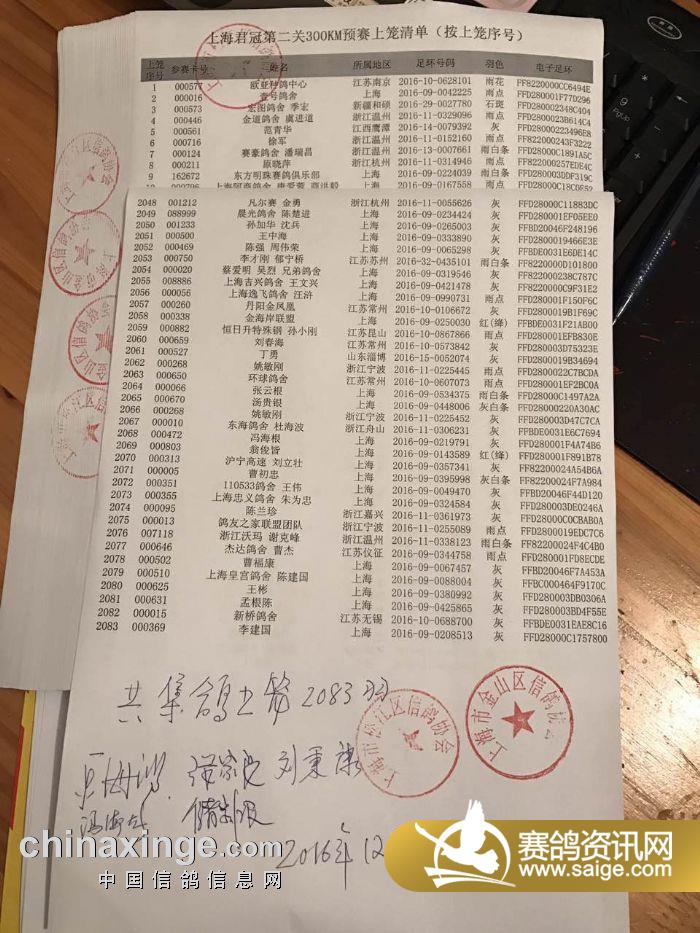 上海君冠第二关300KM预赛上笼清单（按上笼序号）
上笼序号 参赛卡号 姓名 所属地区 足环号码 羽色 电子足环
1 000577 欧亚种鸽中心 江苏南京 2016-10-0628101 雨花 FF8220000CC6494E
2 000016 壹号鸽舍 上海 2016-09-0042225 雨点 FFD280001F77D296
3 000573 宏图鸽舍 季宏 新疆和硕 2016-29-0027780 石斑 FFD280002348C404
4 000446 金道鸽舍 虞进道 浙江温州 2016-11-0329096 雨点 FFD28000023B614C4
5 000561 范青华 江西鹰潭 2016-14-0079392 灰 FFD2800022349​6E8
6 000716 徐军 浙江温州 2016-11-0152160 雨点 FF822000243F3222
7 000124 赛豪鸽舍 潘瑞昌 浙江温州 2016-13-0007661 雨白条 FFD28000C1891A5C
8 000211 原晓萍 浙江杭州 2016-11-0314946 雨点 FF822000257EDE4C
9 162672 东方明珠赛鸽俱乐部 上海 2016-09-0224039 雨白条 FFD280003DDF319C
上海 2016-09-0167558 雨点
2048 001212 凡尔赛 金勇 浙江杭州 2016-11-0055626 灰 FFD28000C11883DC
2049 088999 晨光鸽舍 陈楚进 上海 2016-09-0234424 灰 FFD280001EF05EE0
2050 001233 孙加华 沈兵 上海 2016-09-0265003 灰 FFBD20046F248196
2051 000500 王中海 上海 2016-09-0333890 灰 FFD2800019466E3E
2052 000469 陈强 周伟荣 上海 2016-09-0065298 灰 FFBDE0031E6DE14C
2053 000750 李才刚 郁宁桥 江苏苏州 2016-32-0435101 雨白条 FF8220000D101800
2054 000020 蔡爱明 吴烈 兄弟鸽舍 上海 2016-09-0319546 灰 FF822000238C787C
2055 008886 上海吉兴鸽舍 王文兴 上海 2016-09-0421478 灰 FF8220000C9F31E2
2056 000056 上海逸飞鸽舍 汪浒 上海 2016-09-0990731 雨点 FFD280001F150F6C
2057 000260 丹阳金凤凰 江苏常州 2016-10-0106672 灰 FFD2800019B1F69C
2058 000338 金海岸联盟 上海 2016-09-0250030 红(绛) FFBDE0031F21AB00
2059 000882 恒日升特殊钢 孙小刚 江苏昆山 2016-10-0867866 雨点 FFD280001EFB830E
2060 000659 刘春海 江苏常州 2016-10-0573842 灰 FFD280003D75323E
2061 000527 丁勇 山东淄博 2016-15-0052074 灰 FFD2800019B34694
2062 000268 姚敏刚 浙江宁波 2016-11-0225445 雨点 FFD280002​2C7BCDA
2063 000650 环球鸽舍 江苏常州 2016-10-0607073 雨点 FFD280001EF2BC0A
2064 000066 张云根 上海 2016-09-0534375 雨白条 FFD28000C1497A2A
2065 000670 汤贵银 上海 2016-09-0448006 灰白条 FFD28000220A30AC
2066 000268 姚敏刚 浙江宁波 2016-11-0225452 灰 FFD280003D47C7CA
2067 000010 东海鸽舍 杜海波 浙江舟山 2016-11-0306231 灰 FFBDE0031E6C7694
2068 000472 冯海根 上海 2016-09-0219791 灰 FFD280001F4A74B6
2069 000803 翁俊旨 上海 2016-09-0143589 红(绛) FFD280001F891B78
2070 000313 沪宁高速 刘立壮 上海 2016-09-0357341 灰 FF82200024A54B6A
2071 000005 曹初忠 上海 2016-09-0395998 灰白条 FF82200024F7A984
2072 000351 110533鸽舍 王伟 上海 2016-09-0049470 灰 FFBD20046F44D120
2073 000355 上海忠义鸽舍 朱为忠 上海 2016-09-0324584 灰 FFD280003DE0246A
2074 000095 陈兰珍 浙江嘉兴 2016-11-0361973 灰 FFD28000C0CBAB0A
2075 000013 鸽友之家联盟团队 浙江宁波 2016-11-0255089 雨点 FFD2800019EDC7C6
2076 007118 浙江沃玛 谢克峰 浙江温州 2016-11-0338123 雨白条 FF82200024F4C4B0
2077 000646 杰达鸽舍 曹杰 江苏仪征 2016-09-0344758 雨点 FFD280001FD8ECDE
2078 000502 曹福康 上海 2016-09-0067457 灰 FFBD20046F7A453A
2079 000510 上海皇宫鸽舍 陈建国 上海 2016-09-0088004 灰 FFBC000464F9170C
2080 000625 王彬 上海 2016-09-0380992 灰 FFD280003DB0306A
2081 000631 孟根陈 上海 2016-09-0425865 灰 FFD280003BD4F55E
2082 000015 新桥鸽舍 江苏无锡 2016-10-0688700 灰 FFBDE0031EAE8C16
2083 000369 李建国 上海 2016-09-0208513 灰 FFD28000C1757800
共集鸽上笼2083羽
上海市松江区信鸽协会
上海市金山区信鸽协会
刘秉
2016年12
chinaxinge.com
中国信鸽信息网
赛鸽资讯网
www.saige.com